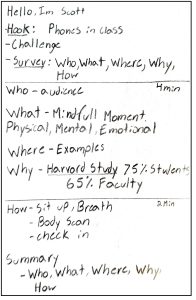 Hello, Im Scott
Hook: Phones in class
- Challenge
- Survey: Who, What, Where, Why,
How
Who - audience 4min
What - Mindfull Moment
Physical, Mental, Emotional
Where - Examples
Why - Harvard Study 75% Students
65% Faculty
How - Sit up, Breath 2Min
- Body Scan
- check in
Summary
- Who, What, Where, Why,
How